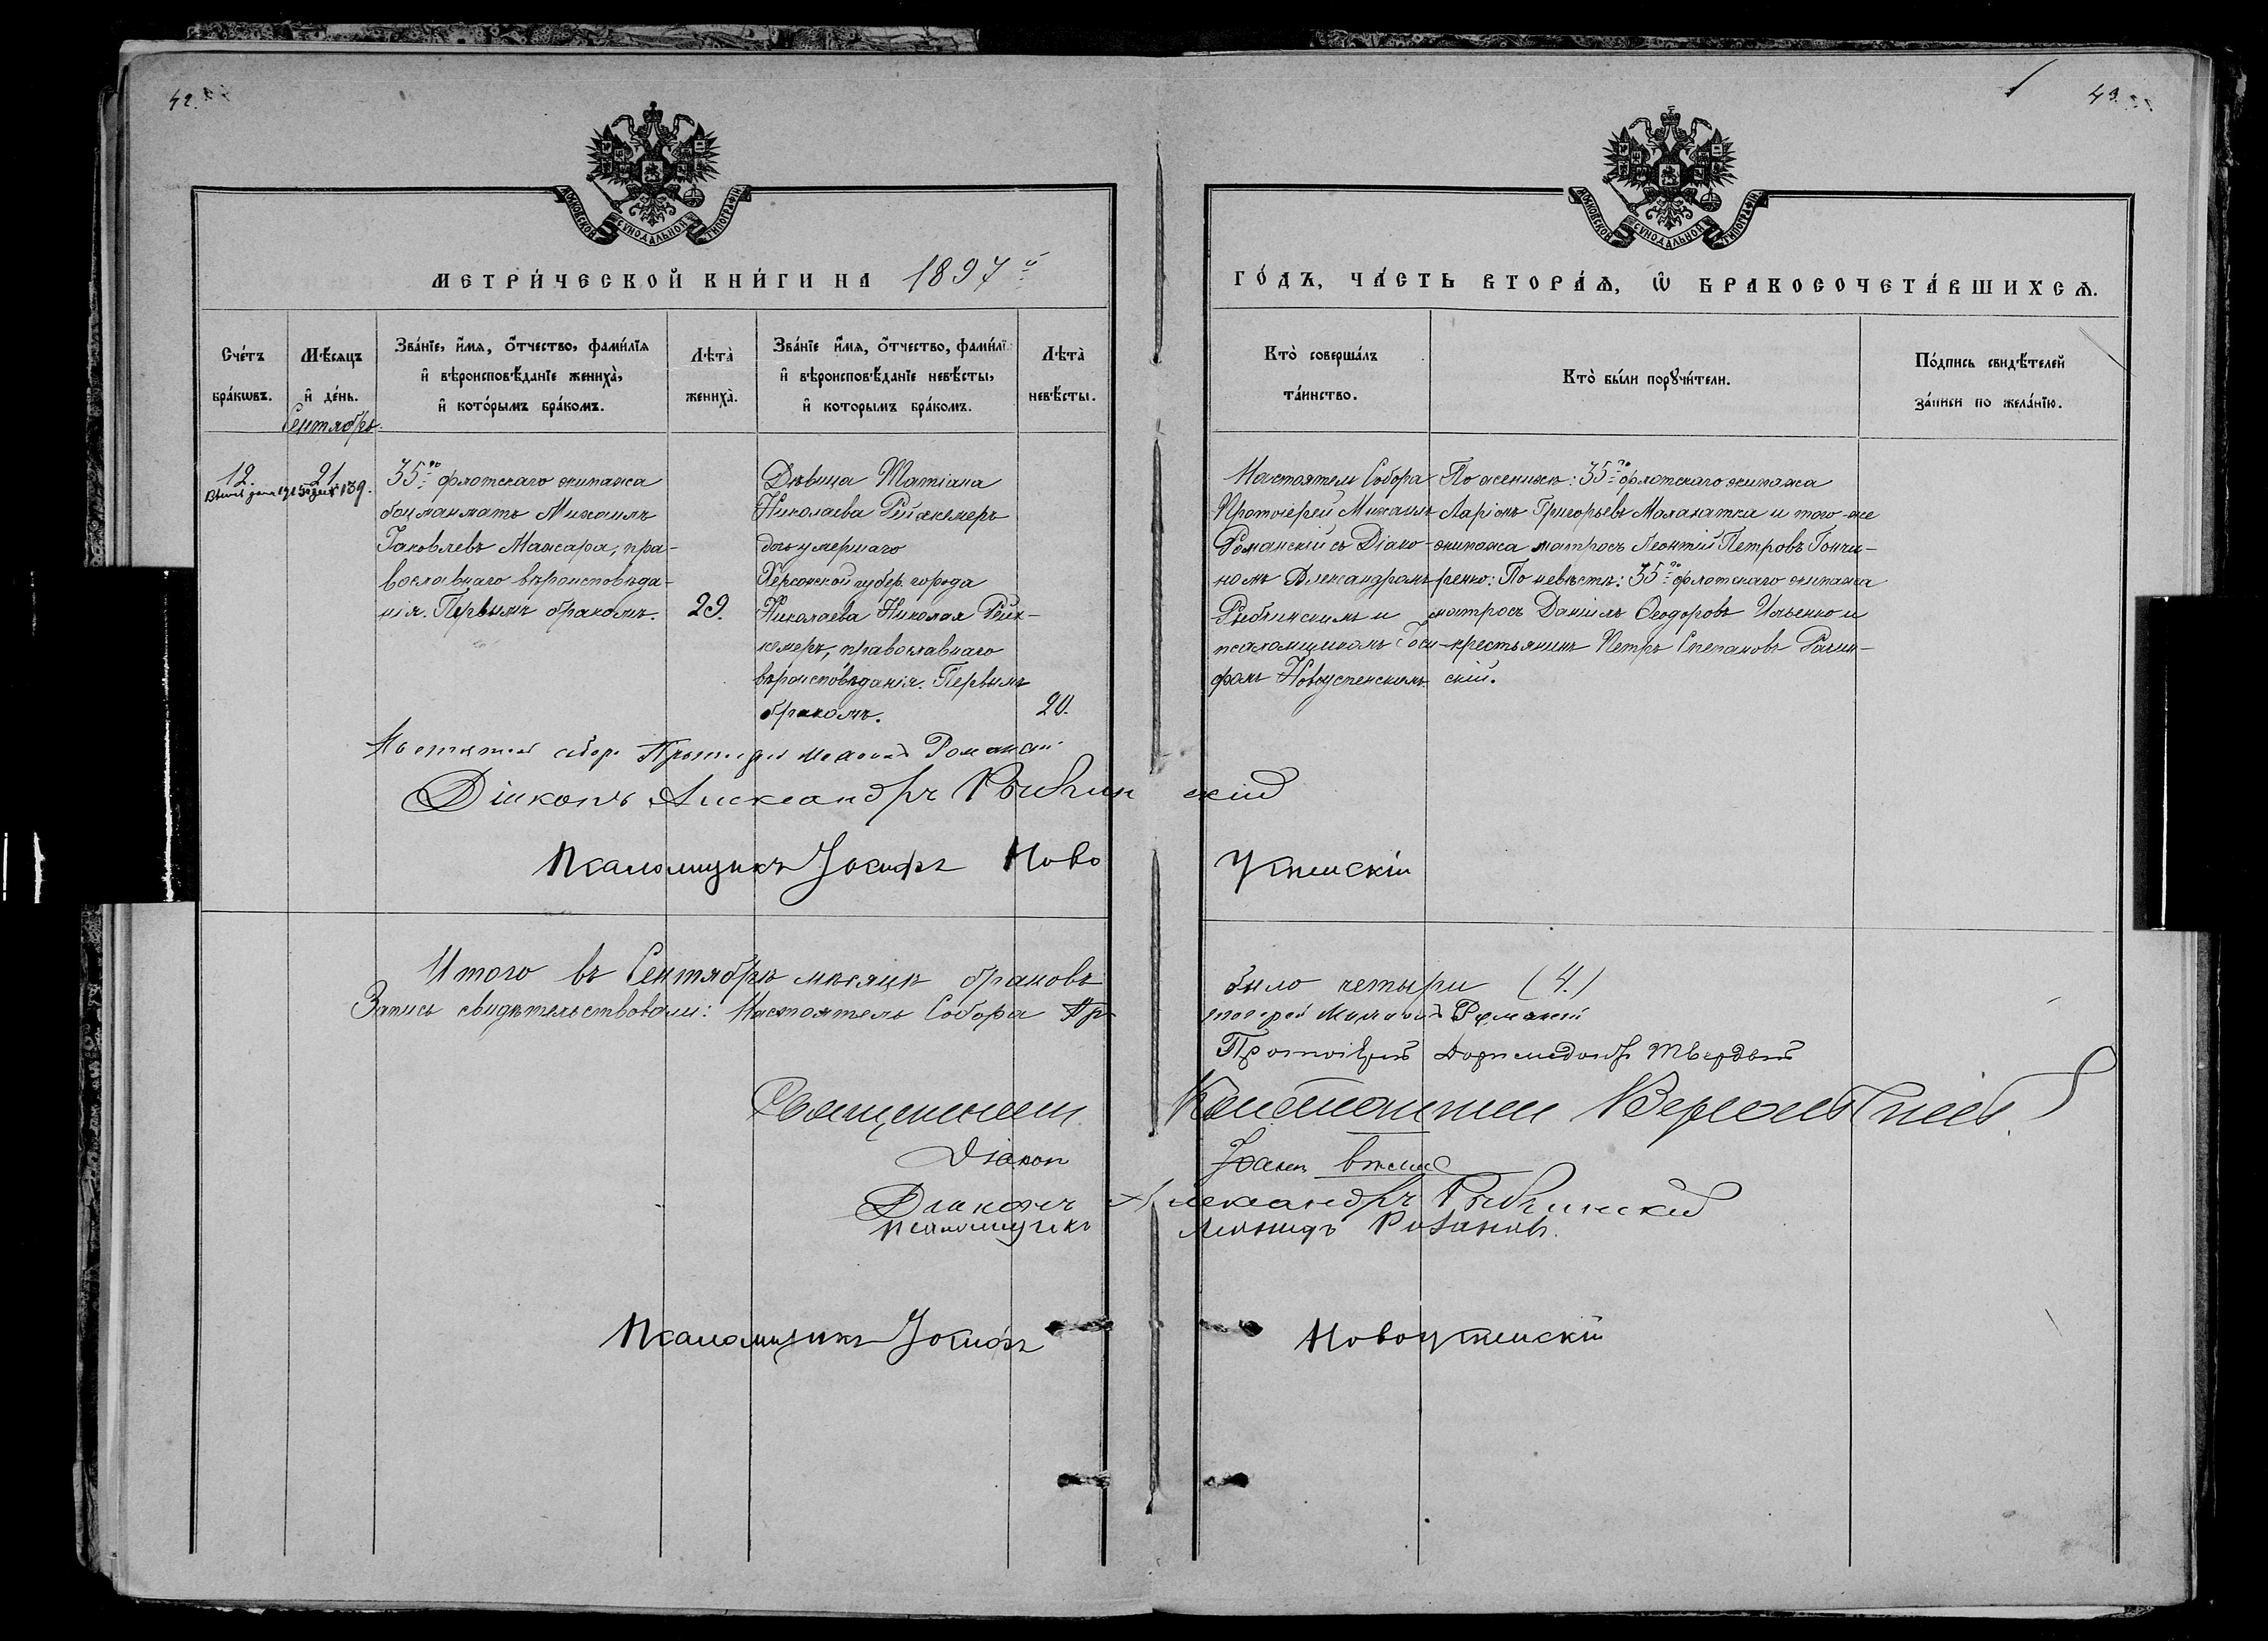 42.
43.
МОСКОВСКОЙ СѴНОДАЛЬНОЙ ТИПОГРАФІИ
МОСКОВСКОЙ СѴНОДАЛЬНОЙ ТИПОГРАФІИ
МЕТРИ́ЧЕСКОЙ КНИ́ГИ НА 1897 й
ГО́ДЪ, ЧА́СТЬ ВТОРА́Ѧ, Ѡ҆ БРАКОСОЧЕТА́ВШИХСѦ.
Сче́тъ бра́кѡвъ.
Мѣ́сяцъ и҆ де́нь.
Зва́нїе, и҆́мя, ѻ҆́тчество, фами́лїя и҆ вѣроисповѣ́данїе жениха̀, и҆ кото́рымъ бра́комъ.
Лѣта̀ жениха̀.
Зва́нїе и҆́мя, ѻ҆́тчество, фами́лї и҆ вѣроисповѣ́данїе невѣ́сты, и҆ которымъ бра́комъ.
Лѣта̀ невѣ́сты.
Кто̀ соверша́лъ та́инство.
Кто̀ бы́ли порꙋчи́тели.
По́дпись свидѣ́телей за́писи по жела́нїю.
Сентябрь
12.
21
35го флотскаго экипажа
боцманматъ Михаилъ
Іаковлевъ Мажара, пра-
вославнаго вѣроисповѣда-
нія. Первымъ бракомъ.
29.
Дѣвица Татіана
Николаева Рейхкемеръ
дочь умершаго
Херсонской губер. города
Николаева Николая Рейх-
кемеръ, православнаго
вѣроисповѣданія. Первымъ
бракомъ.
20.
Настоятель Собора
Протоіерей Михаилъ
Романскій съ Діако-
номъ Александромъ
Рыбчинскимъ и
псаломщикомъ Іоси-
фомъ Новоуспенскимъ.
По женихѣ: 35го флотскаго экипажа
Ларіонъ Григорьевъ Малахатка и того-же
экипажа матросъ Леонтій Петровъ Гонча-
ренко: По невѣстѣ: 35го флотскаго экипажа
матросъ Даніилъ Ѳеодоровъ Ильенко и
крестьянинъ Петръ Степановъ
скій.
Настоятель собора Протоіерей Михаилъ Романскій
Діаконъ Александръ Рыбчинскій
Псаломщикъ Іосифъ Новоуспенскій
Итого въ Сентябрѣ мѣсяцѣ браковъ было четыри (4.)
Запись свидѣтельствовали: Настоятель Собора Протоіерей Михаилъ Романскій
Протоіерей Доримедонтъ Твердый
Священникъ Константинъ
Діакон Іоанн
Діаконъ Александръ Рыбчинскій
Псаломщикъ Леонидъ Розановъ.
Псаломщикъ Іосифъ Новоуспенскій